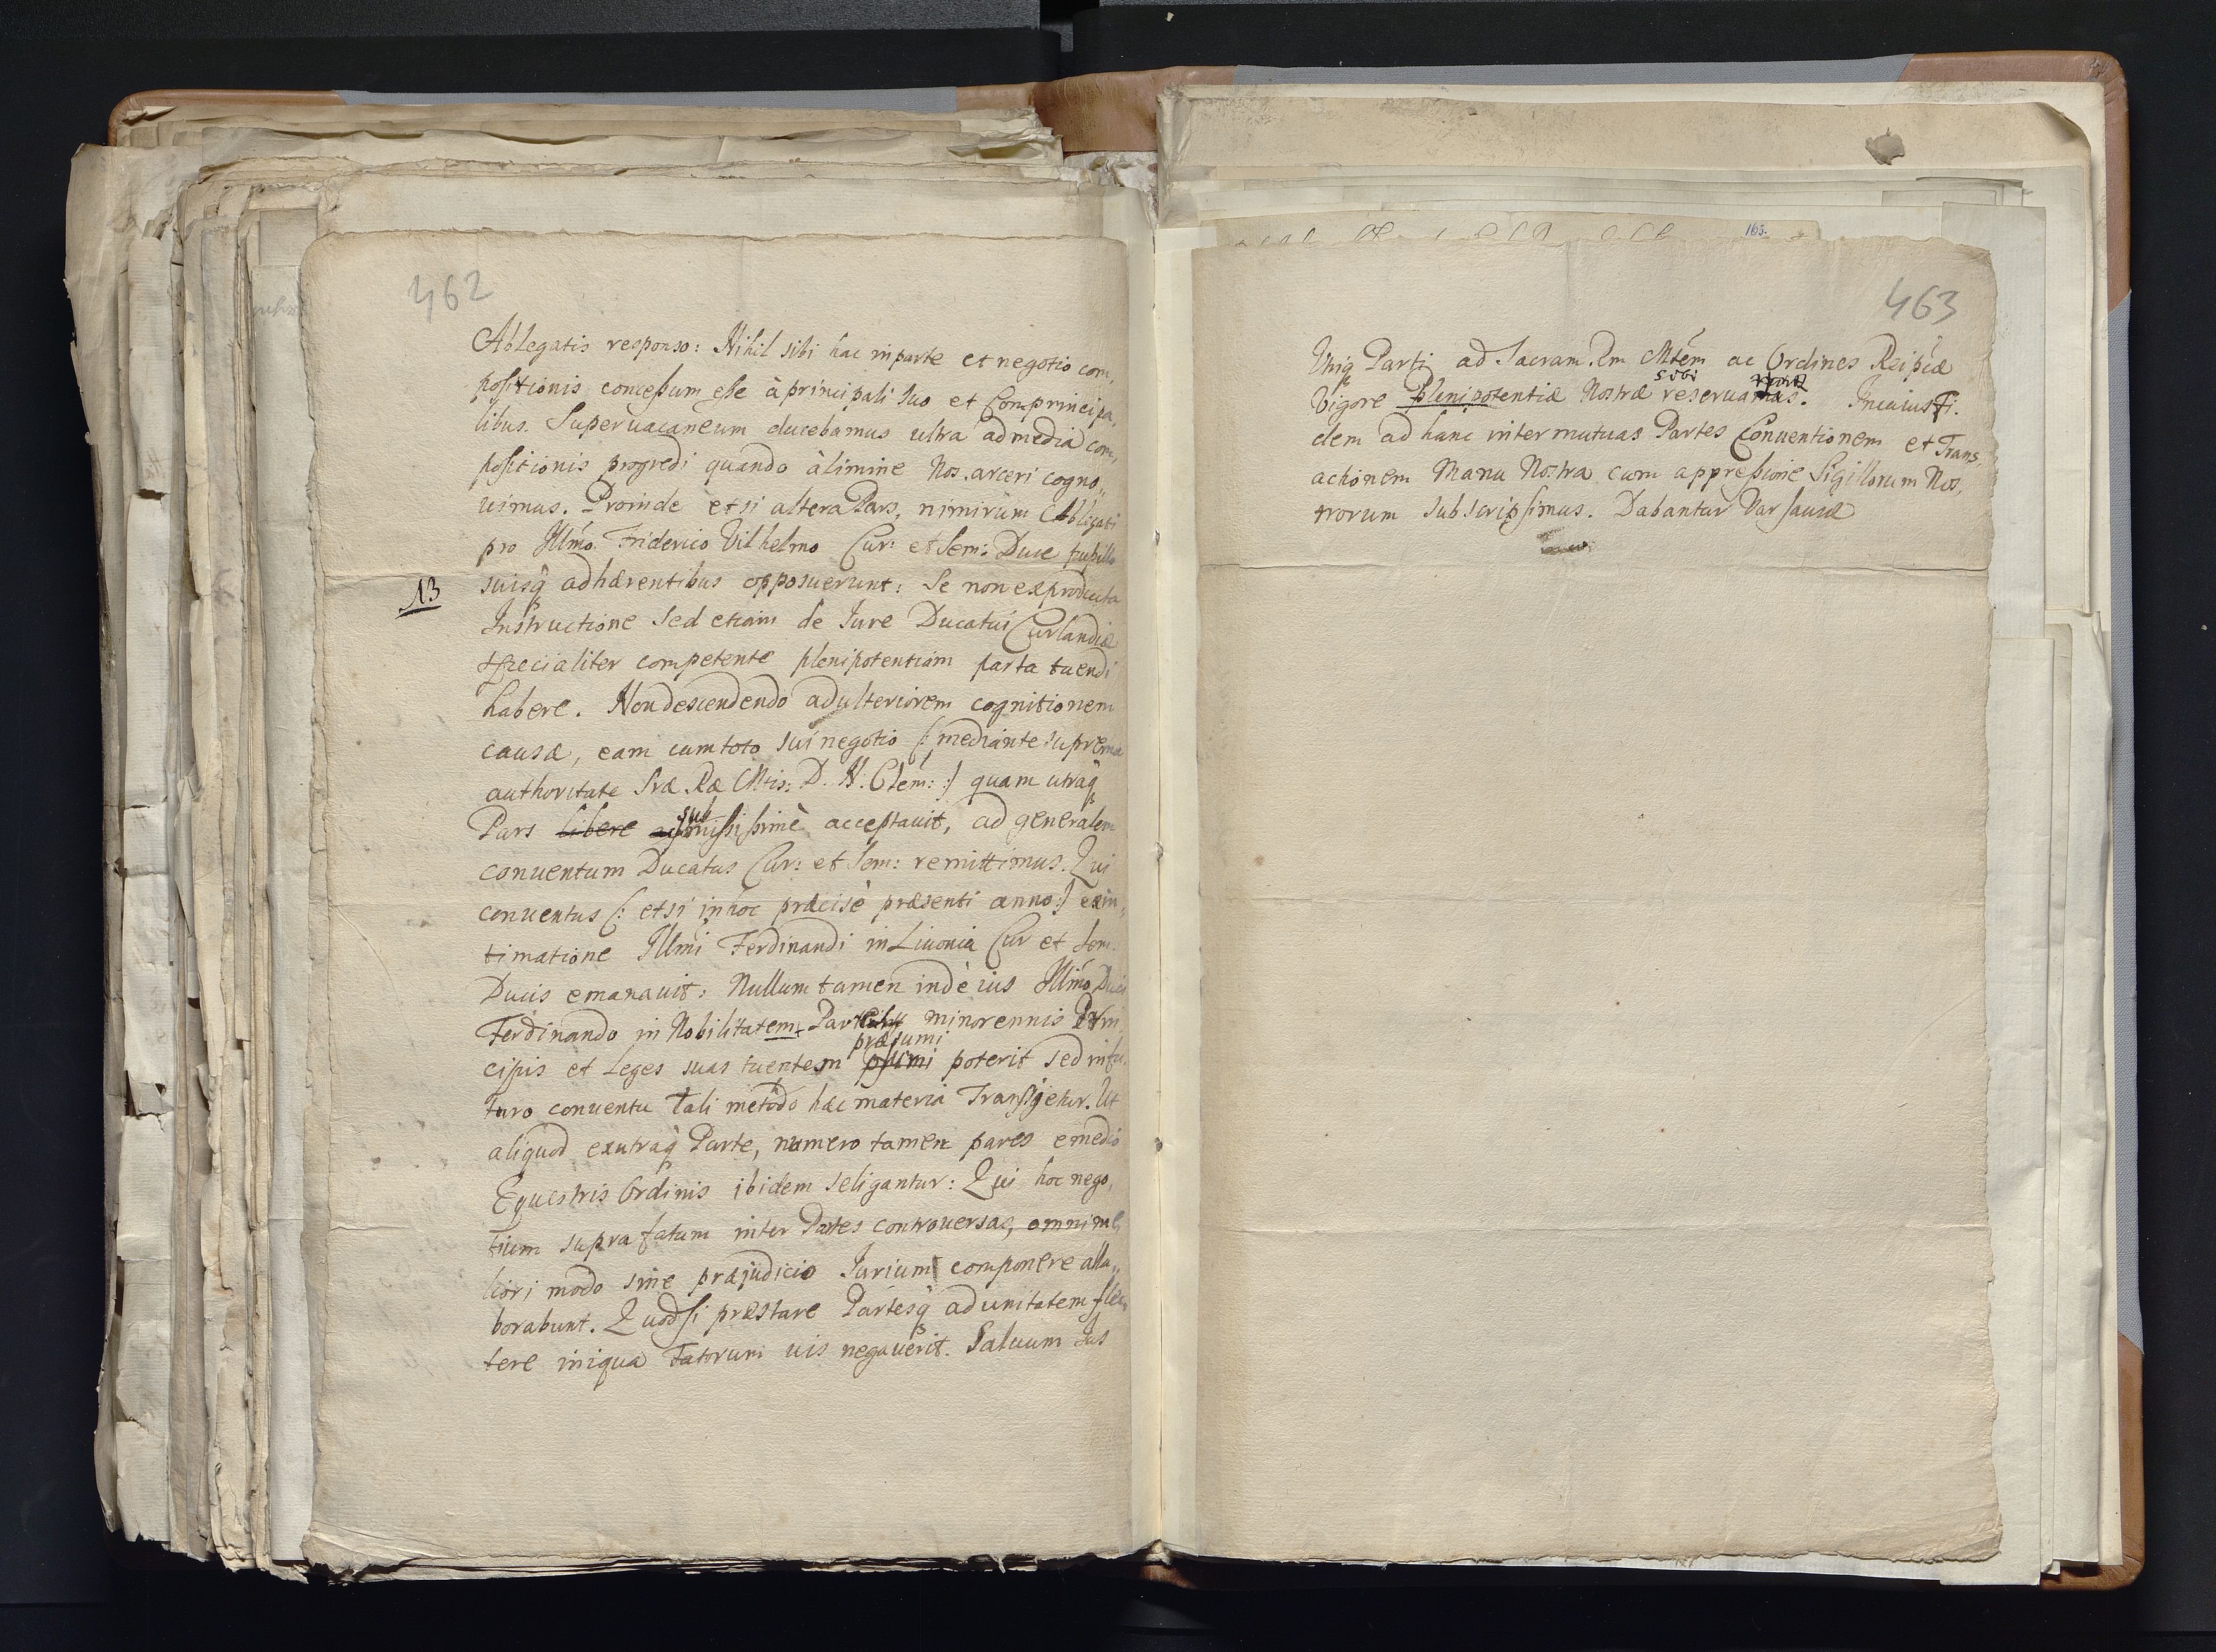 462
Ablegatis responso: Nihil sibi hac in parte et negotio com„
positionis concessum esse à principali suo et Comprincipa„
libus. Supervacaneum ducebamus ultra ad media com„
positionis progredi quando à limine Nos arceri cogno„
uimus. Proinde etsi altera Pars, nimirum Ablegati
pro Illmo Friderico Vilhelmo Cur: et Sem: Duce pupillo
NB
suisq adhærentibus opposuerunt: Se non ex producta
Instructione sed etiam de Jure Ducatui Curlandiæ
specialiter competente plenipotentiam parta tuendi
habere. Non descendendo ad ulteriorem cognitionem
causæ, eam cum toto sui negotio (: mediante suprema
authoritate Sræ Ræ Mtis: D. N. Clem: :) quam utraq
Pars libere submississimè acceptauit, ad generalem
conuentum Ducatus Cur: et Sem: remittimus. Qui
conuentus (: etsi in hoc præcisè præsenti anno :) ex in„
timatione Illmi Ferdinandi in Liuonia Cur et Sem.
Ducis emanauit: Nullum tamen indè ius Illmo Duci
Ferdinando in Nobilitatem minorennis Prin
præsumi
cipis et Leges suas tuentem poterit sed in fu„
turo conuentu tali methodo hæc materia Transigetur. Ut
aliquod ex utraq Parte, numero tamen pares e medio
Equestris Ordinis ibidem seligantur: Qui hoc nego„
tium supra fatum inter Partes controuersas, omni me„
liori modo sine præjudicio Jurium componere alla„
borabunt. Quod si præstare Partesq ad unitatem flec„
tere iniqua Fatorum uis negauerit. Saluum Ius
165.
463
Uniq Parti ad Sacram Rm Mtem ac Ordines Reipcæ
sibi
Vigore Plenipotentiæ Nostræ reseruamus. In cuius Fi„
dem ad hanc inter mutuas Partes Conuentionem et Trans„
actionem Manu Nostra cum appressione Sigillorum Nos„
trorum subscripsimus. Dabantur Varsauiæ